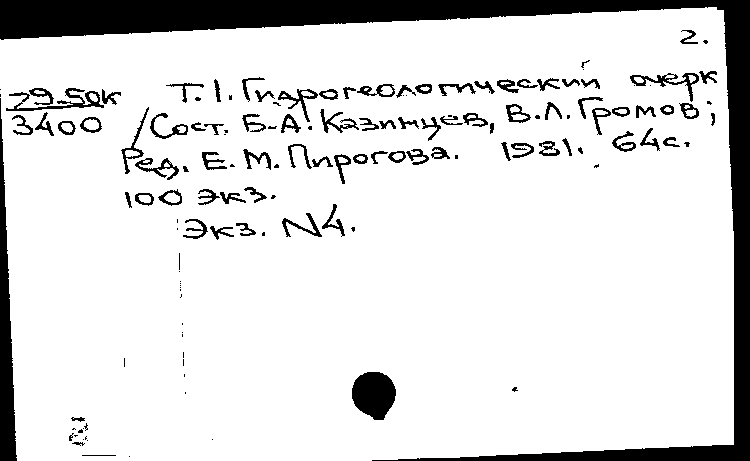 2.
79-50к Т.1. Гидрогеологический очерк
3400 / Сост. Б.А. Казинцев, В.Л. Громов;
Ред. Е.М. Пирогова. 1981. 64с.
100 экз.
Экз. N4.